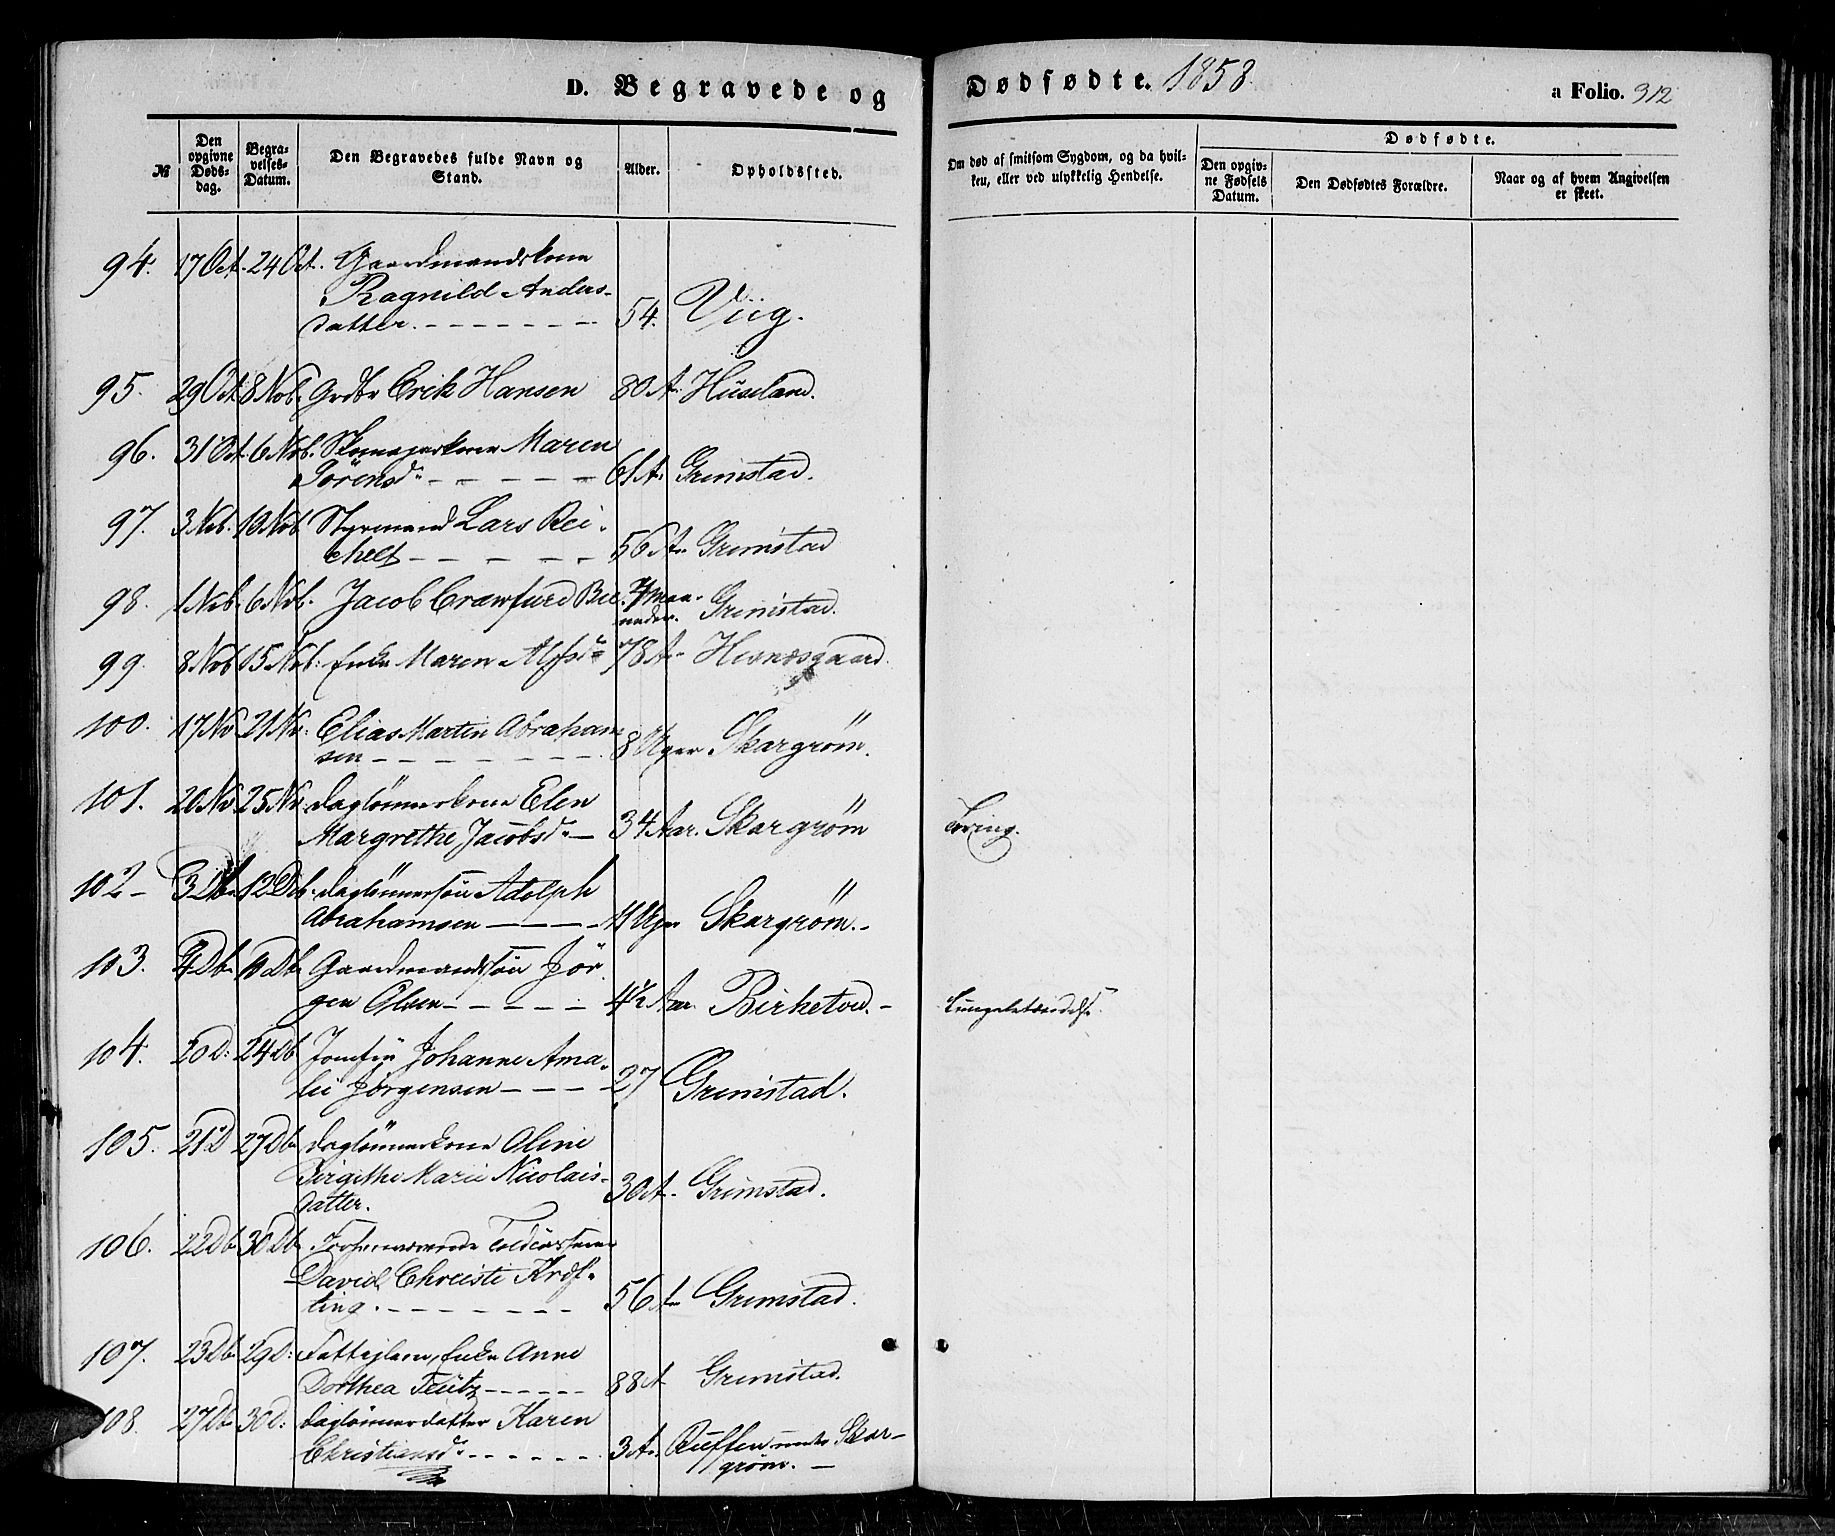 D. Begravede og Dødfødte. 1858. a Folio. 312
№ Den opgivne Døds-dag. Begra-velses-Datum. Den Begravedes fulde Navn og Stand. Alder. Opholdssted. Om død af smitsom Sygdom, og da hvil-ken, eller ved ulykkelig Hendelse. Dødfødte. Den opgiv-ne Fødsels Datum. Den Dødfødtes Forældre. Naar og af hvem Angivelsen er skeet.
94. 17 Oct. 24 Oct. Gaardmandskone
Ragnild Anders-
datter. 54. Viig.
95. 29 Oct 8 Nob. Grdbr Erik Hansen 80 A. Huseland.
96. 31 Oct. 6 Nob. Skomagerkone Maren
Sörensd. 61 A. Grimstad.
97. 3 Nob. 10 Nob Styrmand Lars Rei-
chelt 56 A. Grimstad
98. 1 Nob. 6 Nob. Jacob Crawfurd Bie. 7 Maa-
neder. Grimstad.
99. 8 Nob 15 Nob. Enke Maren Alfsd. 78 A. Hesnesgaard.
100. 17 Nv 21 Nv. Elias Martin Abraham
sen 8 Uger. Skargrøm.
101. 20 Nv 25 Nv. Daglönnerkone Elen
Margrethe Jacobsd. 34 Aar. Skargrøm Tæring.
102 3 Db. 12 Db. Daglönnersön Adolph
Abrahamsen 11 Uger Skargrøm.
103. 4 Db. 10 Db. Gaardmandssön Jör-
gen Olsen 4½ Aar. Birketved. Lungebetændelse.
104. 20 D. 24 Db. Jomfru Johanne Ama-
lie Jørgensen 27 Grimstad.
105. 21 D 27 Db. Daglönnerkone Oline
Birgithe Marie Nicolais-
datter. 30 A. Grimstad.
106. 22 Db. 30 Db. Forhenværende
David Chreisti Kröf-
ting. 56 A. Grimstad.
107. 23 Db 29 D. Fattiglem, Enke Anne
Dorthea Teutz 88 A Grimstad.
108. 27 Db. 30 D. Daglönnerdatter Karen
Christiansd. 3 A. Ruffen under Skar-
grøm.